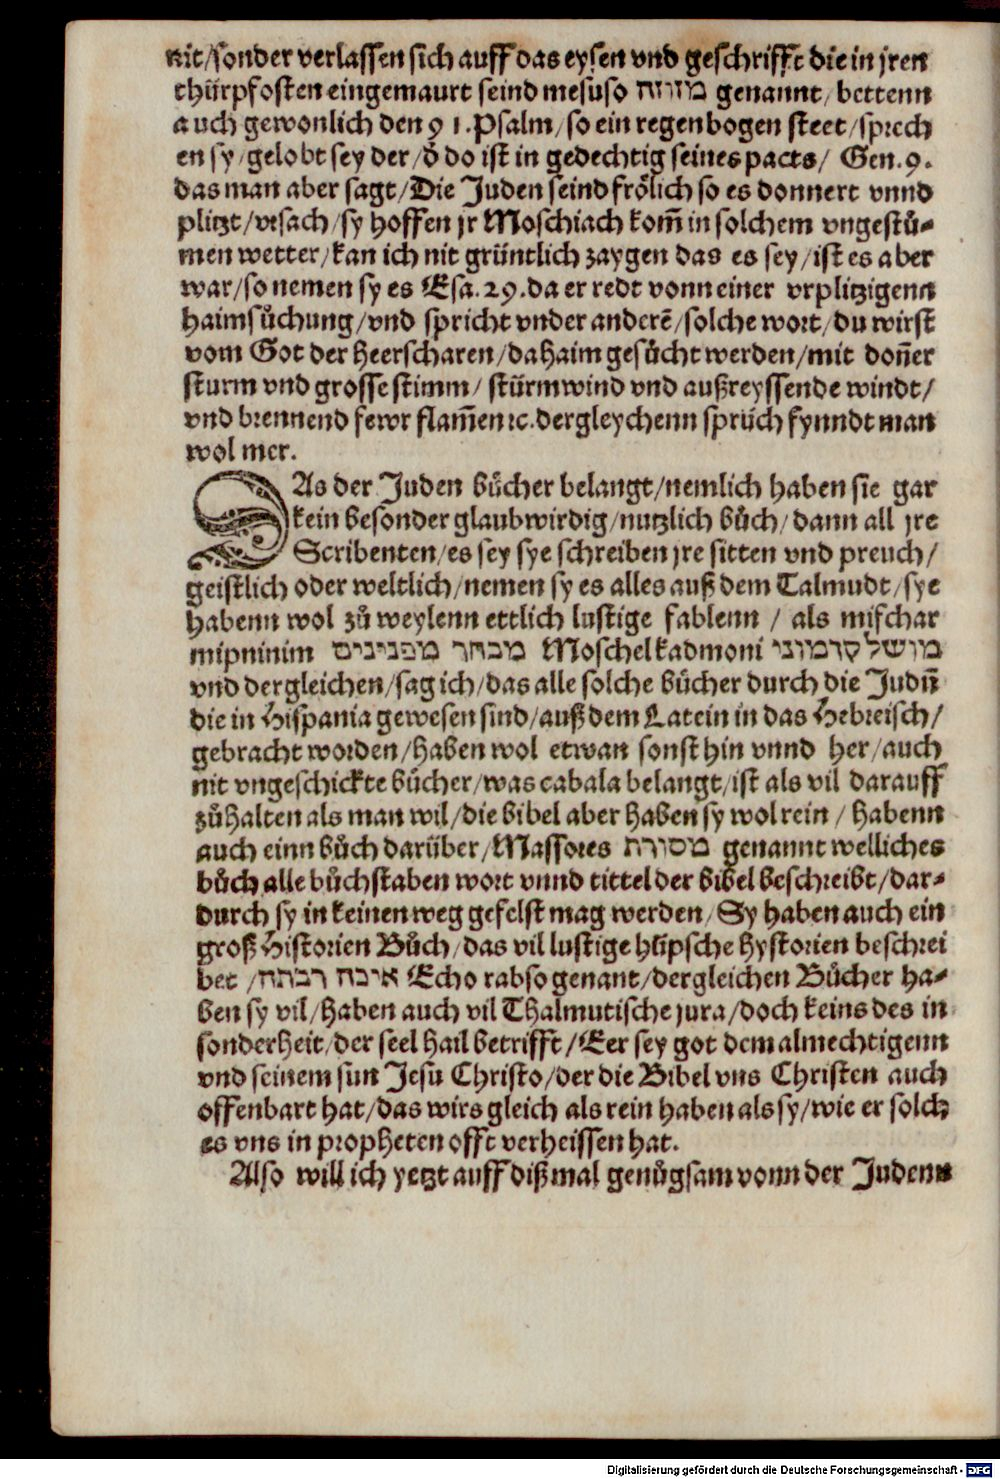 nit/sonder verlassen sich auff das eysen vnd geschrifft die in jren
thürpfosten eingemaurt seind mesuso מזוזה genannt/bettenn
auch gewonlich den 91.Psalm/so ein regenbogen steet/sprech
en sy/gelobt sey der/d̕ do ist in gedechtig seines pacts/ Gen.9.
das man aber sagt/Die Juden seind frölich so es donnert vnnd
plitzt/vrsach/sy hoffen jr Moschiach kom̄ in solchem vngestü-
men wetter/kan ich nit grüntlich zaygen das es sey/ist es aber
war/so nemen sy es Esa.29.da er redt vonn einer vrplitzigenn
haimsůchung/vnd spricht vnder anderē/solche wort/du wirst
vom Got der Heerscharen/dahaim gesůcht werden/mit don̄er
sturm vnd grosse stimm/ stürmwind vnd außreyssende windt/
vnd brennend fewr flam̄en ꝛc.dergleychenn sprüch fynndt man
wol mer.
DAs der Juden bücher belangt/nemlich haben sie gar
kein besonder glaubwirdig/nutzlich bůch/dann all jre
Scribenten/es sey sye schreiben jre sitten vnd preuch/
geistlich oder weltlich/nemen sy es alles auß dem Talmudt/sye
habenn wol zů weylenn ettlich lustige fablenn / als mifchar
mipninim מבחר מפנינים Moschelkadmoni מושל קדמוני
vnd dergleichen/sag ich/das alle solche bücher durch die Judn̄
die in Hispania gewesen sind/auß dem Latein in das Hebreisch/
gebracht worden/haben wol etwan sonst hin vnnd her/auch
nit vngeschickte bücher/was cabala belangt/ist als vil darauff
zůhalten als man wil/die bibel aber haben sy wol rein / habenn
auch einn bůch darüber/Massores מסורת genannt welliches
bůch alle bůchstaben wort vnnd tittel der bibel beschreibt/dar-
durch sy in keinen weg gefelst mag werden/Sy haben auch ein
groß Historien Bůch/das vil lustige hlipsche hystorien beschrei
bet /איכה רבתה Echo rabso genant/dergleichen Bücher ha-
ben sy vil/haben auch vil Thalmutische jura/doch keins des in
sonderheit/der seel hail betrifft/Eer sey got dem almechtigenn
vnd seinem sun Jesu Christo/der die Bibel vns Christen auch
offenbart hat/das wirs gleich als rein haben als sy/wie er solch
es vns in propheten offt verheissen hat.
Also will ich yetzt auff diß mal genůgsam vonn der Judenn
Digitalisierung gefördert durch die Deutsche Forschungsgemeinschaft - DFG